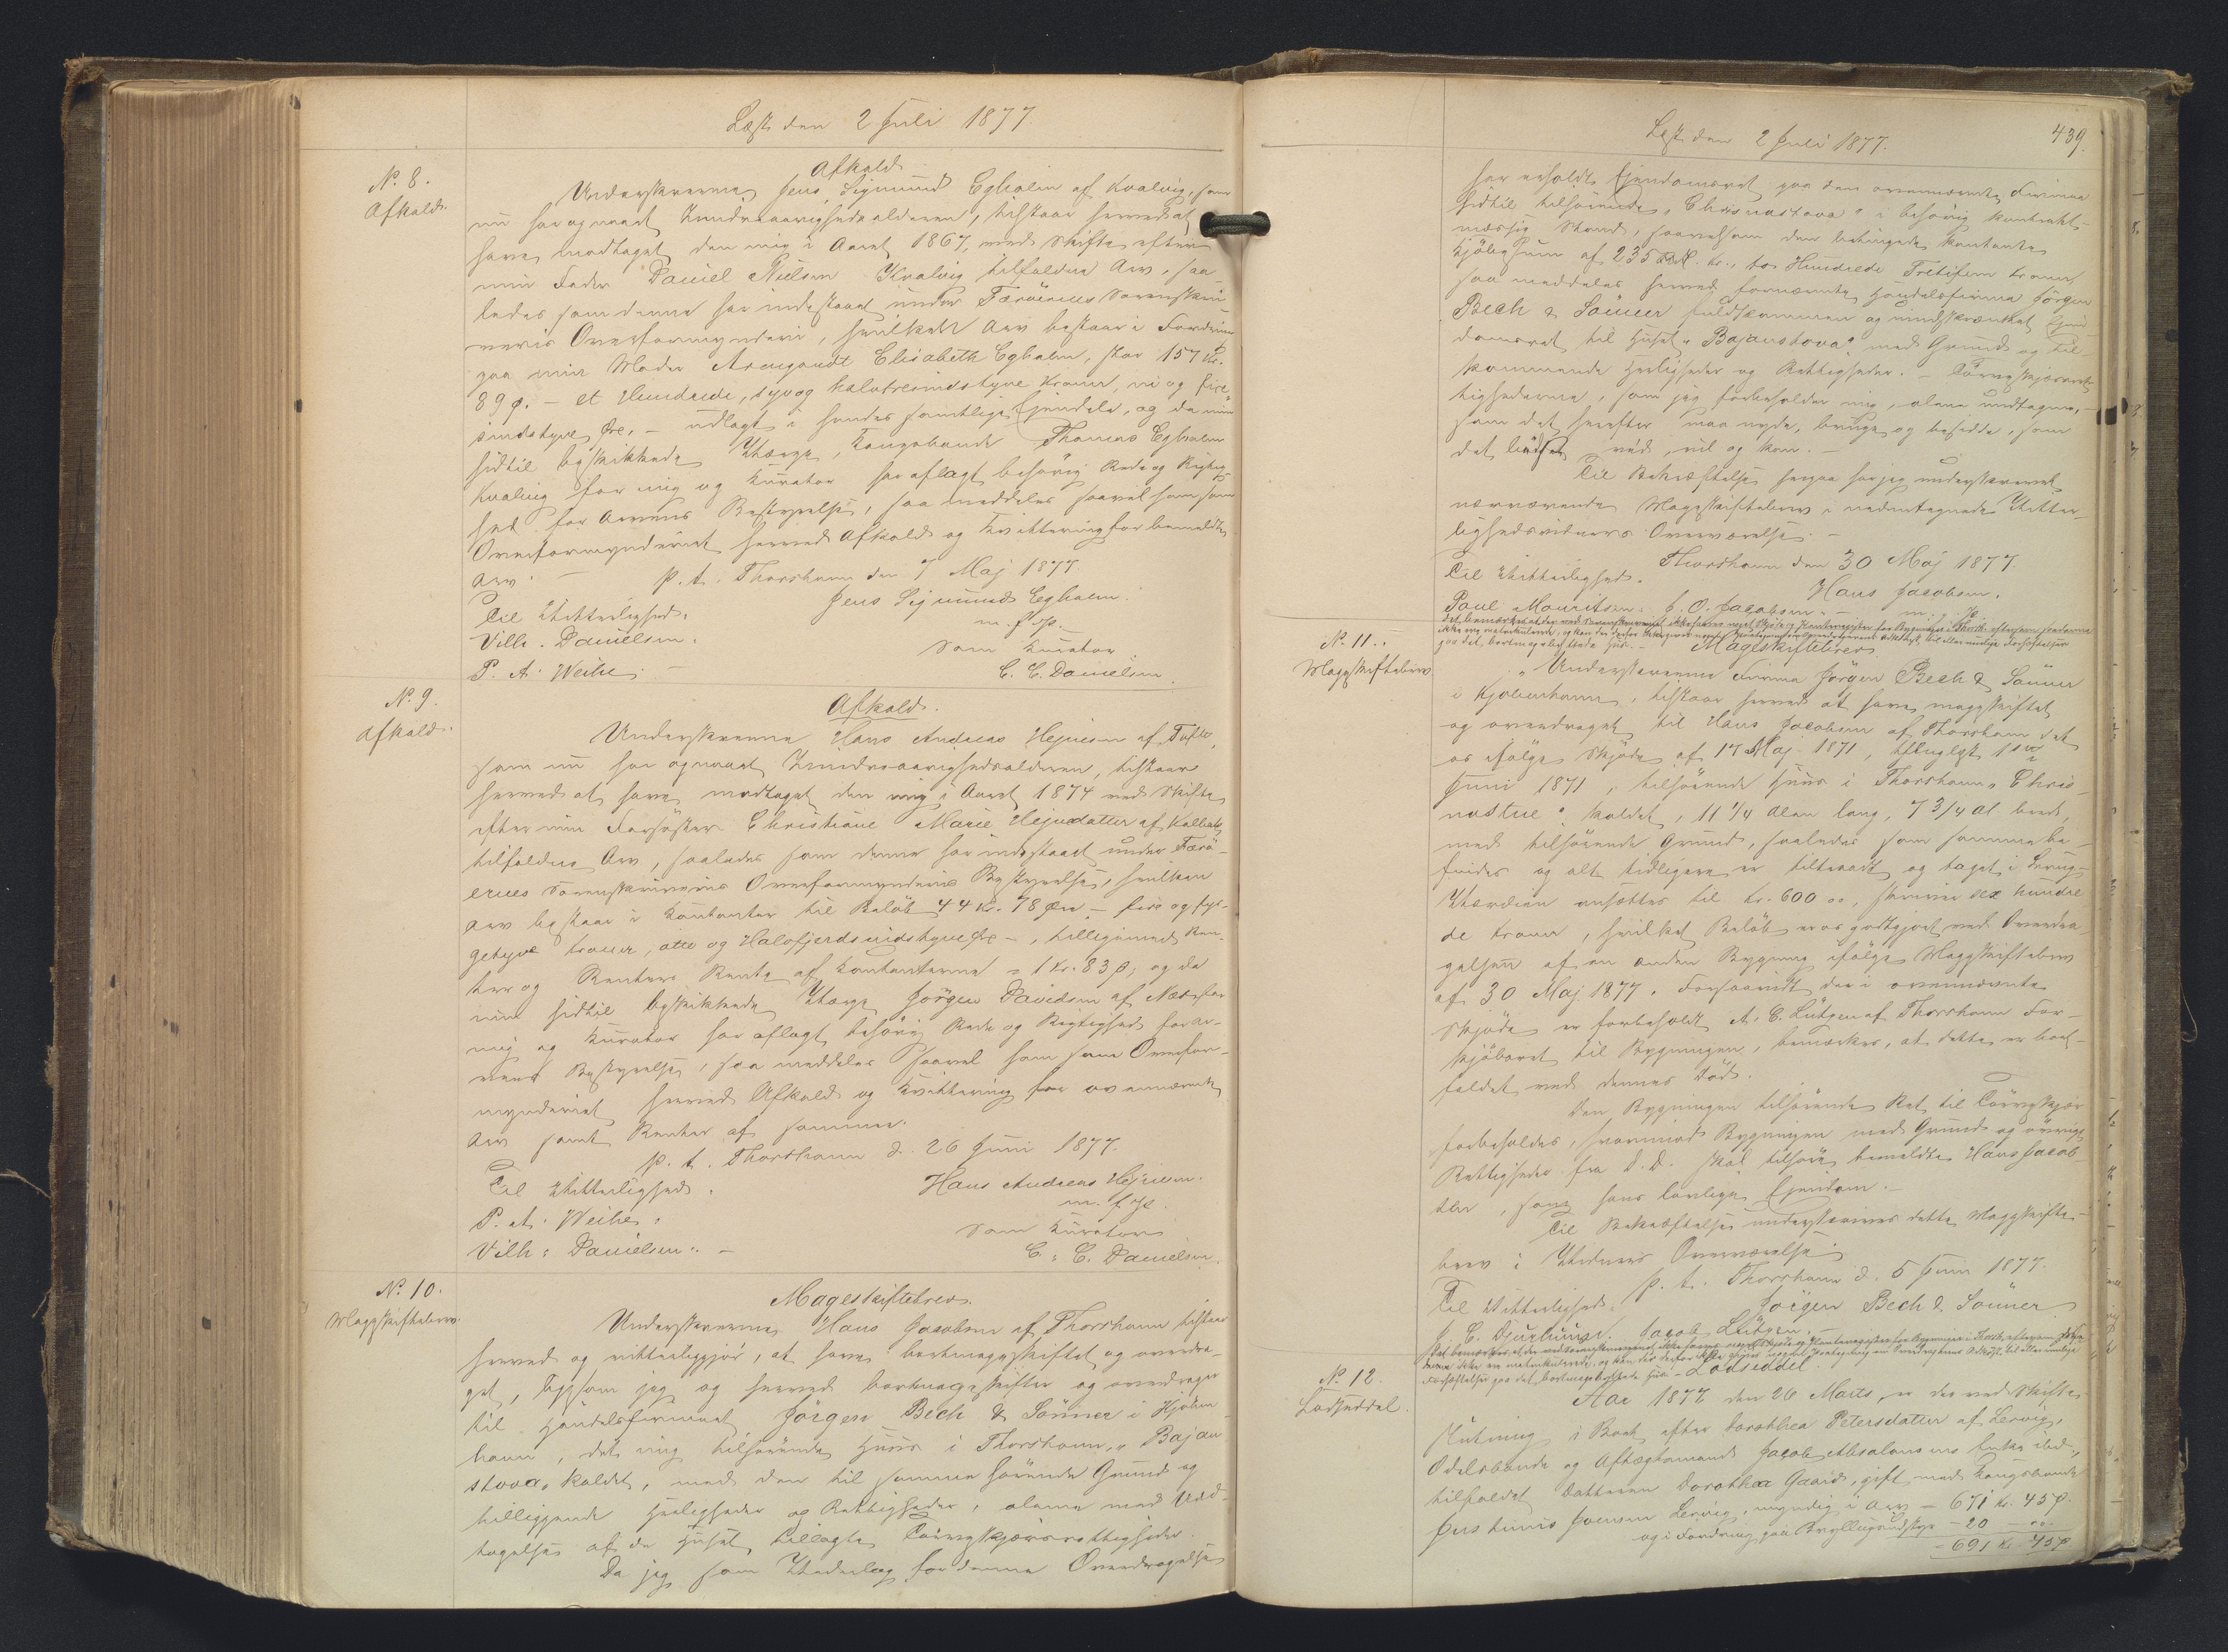 Læst den 2 Juli 1877.
No. 8.
Afkald.
Afkald.
Undertegnede Jens Sigmund Egholm af Kvalvig, som
nu har opnaaet Fuldmyndighedsalderen, tilstaar herved at
have modtaget den mig i Aaret 1867, ved Skifte efter
min Fader Daniel Nielsen Kvalvig tilfaldne Arv, saa-
ledes som denne har indestaaet under Færøernes Sorenskri-
veris Overformynderi, hvilken Arv bestaar i Fordring
paa min Moder Armgardt Elisabeth Egholm, stor 157 Kr.
89 ø. - et Hundrede, syv og halvtresindstyve Kroner, ni og fire-
sindstyve Øre, - udlagt i hendes samtlige Ejendele, og da min
hidtil beskikkede Værge, Kongsbonde Thomas Egholm
Kvalvig for mig og Kurator har aflagt behørig Rede og Rigtig-
hed for Arvens Bestyrelse, saa meddeles saavel ham som
Overformynderiet herved Afkald og Kvittering for bemeldte
Arv. -
p. t. Thorshavn den 7 Maj 1877.
Jens Sigmund Egholm.
m. f. P.
Til Vitterlighed:
Vilh. Danielsen.
P. A. Weihe. -
Som Kurator
C. C. Danielsen.
No. 9.
Afkald.
Afkald.
Undertegnede Hans Andreas Hejnesen af Tofte,
som nu har opnaaet Fuldmyndighedsalderen, tilstaar
herved at have modtaget den mig i Aaret 1874 ved Skifte
efter min Farsøster Christiane Marie Hejnesdatter af Kalbak
tilfaldne Arv, saaledes som denne har indestaaet under Færø-
ernes Sorenskriveris Overformynderis Bestyrelse, hvilken
Arv bestaar i Kontanter til Beløb 44 Kr. 78 Øre - fire og fyr-
getyve Kroner, otte og Halvfjerdsindstyve Øre -, tilligemed Ren-
ter og Renters Rente af Kontanterne 1 Kr. 83 ø; og da
min hidtil beskikkede Værge Jørgen Davidsen af Næs for
mig og Kurator har aflagt behørig Rede og Rigtighed for Ar-
vens Bestyrelse, saa meddeles saavel ham som Overfor-
mynderiet herved Afkald og Kvittering for ovennævnte
Arv samt Renter af samme.
p. t. Thorshavn d. 26 Juni 1877.
Hans Andreas Hejnesen.
m. f. P.
Til Vitterlighed.
P. A. Weihe.
Vilh: Danielsen. -
Som Kurator
C. C. Danielsen.
No. 10.
Mageskiftebrev.
Mageskiftebrev.
Undertegnede Hans Jacobsen af Thorshavn tilstaar
herved og vitterliggjør, at have bortmageskiftet og overdra-
get, ligesom jeg og herved bortmageskifter og overdrager
til Handelsfirmaet Jörgen Bech & Sönner i Kjøben-
havn, det mig tilhørende Huus i Thorshavn, "Bajan-
stova" kaldet, med den til samme hørende Grund og
tilliggende Herligheder og Rettigheder, alene med Und-
tagelse af de Huset tillagte Tørveskjærsrettigheder.
Da jeg som Vederlag for denne Overdragelse
Læst den 2 Juli 1877.
439.
har erholdt Ejendomsret paa den ovennævnte Firma
hidtil tilhørende "Chrisnastova" i behørig kontrakt-
mæssig Stand, saavelsom den betingede kontante
Kjøbesum af 235 Kr., to Hundrede Tretifem Kroner,
saa meddeles herved fornævnte Handelsfirma Jörgen
Bech & Sönner fuldkommen og uindskrænket Ejen-
domsret til Huset "Bajanstova" med Grund og til-
kommende Herligheder og Rettigheder. - Tørveskjærsret-
tighederne, som jeg forbeholder mig, alene undtagne, -
som det herefter maa nyde, bruge og besidde, som
det bedst véd, vil og kan. -
Til Bekræftelse herpaa har jeg underskrevet
nærværende Mageskiftebrev i undertegnede Vitter-
lighedsvidners Overværelse. -
Thorshavn den 30 Maj 1877.
Hans Jacobsen.
m. f. P.
Til Vitterlighed.
Poul Mouritsen. J. O. Jacobsen. -
No. 11.
Mageskiftebrev.
Mageskiftebrev
Undertegnede Firma Jörgen Bech & Sönner
i Kjøbenhavn, tilstaar herved at have mageskiftet
og overdraget til Hans Jacobsen af Thorshavn det
os ifølge Skjøde af 17 Maj 1871, thinglæst 1ste
Juni 1871, tilhørende Huus i Thorshavn "Chris-
nastue" kaldet, 11 1/4 Alen lang, 7 3/4 Al bred,
med tilhørende Grund, saaledes som samme be-
findes og alt tidligere er tiltraadt og taget i Brug.
Værdien ansættes til Kr. 600 00, skriver sex hundre-
de Kroner, hvilket Beløb er os godtgjort ved Overdra-
gelsen af en anden Bygning ifølge Mageskiftebrev
af 30 Maj 1877. Forsaavidt der i ovennævnte
Skjøde er forbeholdt A. C. Lützen af Thorshavn For-
kjøbsret til Bygningen, bemærkes, at dette er bort-
faldet ved dennes Død.
Den Bygningen tilhørende Ret til Tørveskjær
forbeholdes, hvorimod Bygningen med Grund og øvrige
Rettigheder fra D. D. skal tilhøre bemeldte Hans Jacob-
sen, som hans lovlige Ejendom. -
Til Bekræftelse underskrives dette Mageskifte-
brev i Vidners Overværelse.
p. t. Thorshavn d. 5 Juni 1877.
Jörgen Bech & Sönner
Til Vitterlighed.
J. C. Djurhuus. Jacob Lützen. -
No. 12.
Lodseddel.
Lodseddel.
Aar 1877 den 26 Marts, er der ved Skifte-
slutning i Boet efter Dorothea Petersdatter af Lervig,
Odelsbonde og Aftægtsmand Jacob Absalonsens Enke ibd.,
tilfaldet Datteren Dorothea Gaard, gift med Kongsbonde
Jens Joensen Lervig, myndig i Arv - 671 Kr. 45 ø.
og i Fordring paa Bryllupsudstyr - 20 - "
- 691 Kr. 45 ø